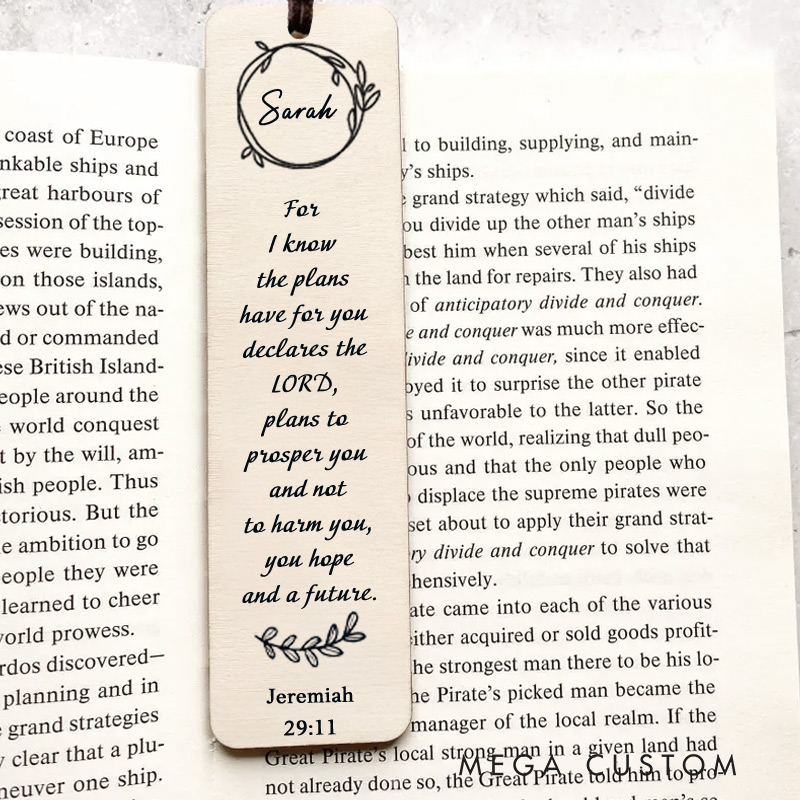 coast of Europe
nkable ships and
reat harbours of
session of the top-
es were building,
on those islands,
ews out of the na-
d or commanded
ese British Island-
eople around the
world conquest
t by the will, am-
ish people. Thus
torious. But the
e ambition to go
eople they were
learned to cheer
world prowess.
rdos discovered—
planning and in
e grand strategies
y clear that a plu-
neuver one ship.
Sarah
For
I know
the plans
have for you
declares the
LORD,
plans to
prosper you
and not
to harm you,
you hope
and a future.
Jeremiah
29:11
l to building, supplying, and main-
y's ships.
grand strategy which said, “divide
ou divide up the other man's ships
best him when several of his ships
n the land for repairs. They also had
of anticipatory divide and conquer.
e and conquer was much more effec-
ivide and conquer, since it enabled
oyed it to surprise the other pirate
s unfavorable to the latter. So the
of the world, realizing that dull peo-
ous and that the only people who
displace the supreme pirates were
set about to apply their grand strat-
ry divide and conquer to solve that
hensively.
ate came into each of the various
either acquired or sold goods profit-
he strongest man there to be his lo-
he Pirate's picked man became the
manager of the local realm. If the
Great Pirate's local strong-man in a given land had
not already done so, the Great Pirate told him to pro-
MEGA CUSTOM